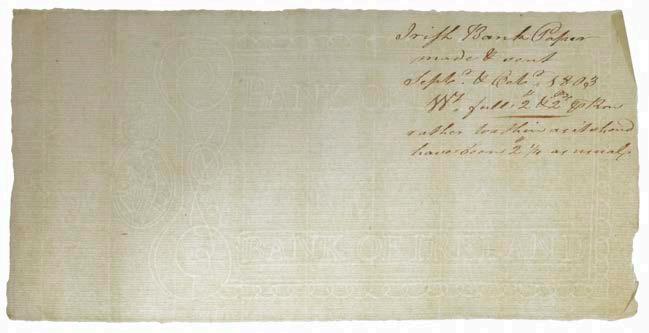 Irish Bank Paper
made & sent
Septr. & Octr. 1803
Wt. full 2 & 2
rather too thin as it should
have been 2 ¼ as usual
BANK OF
BANK OF IRELAND